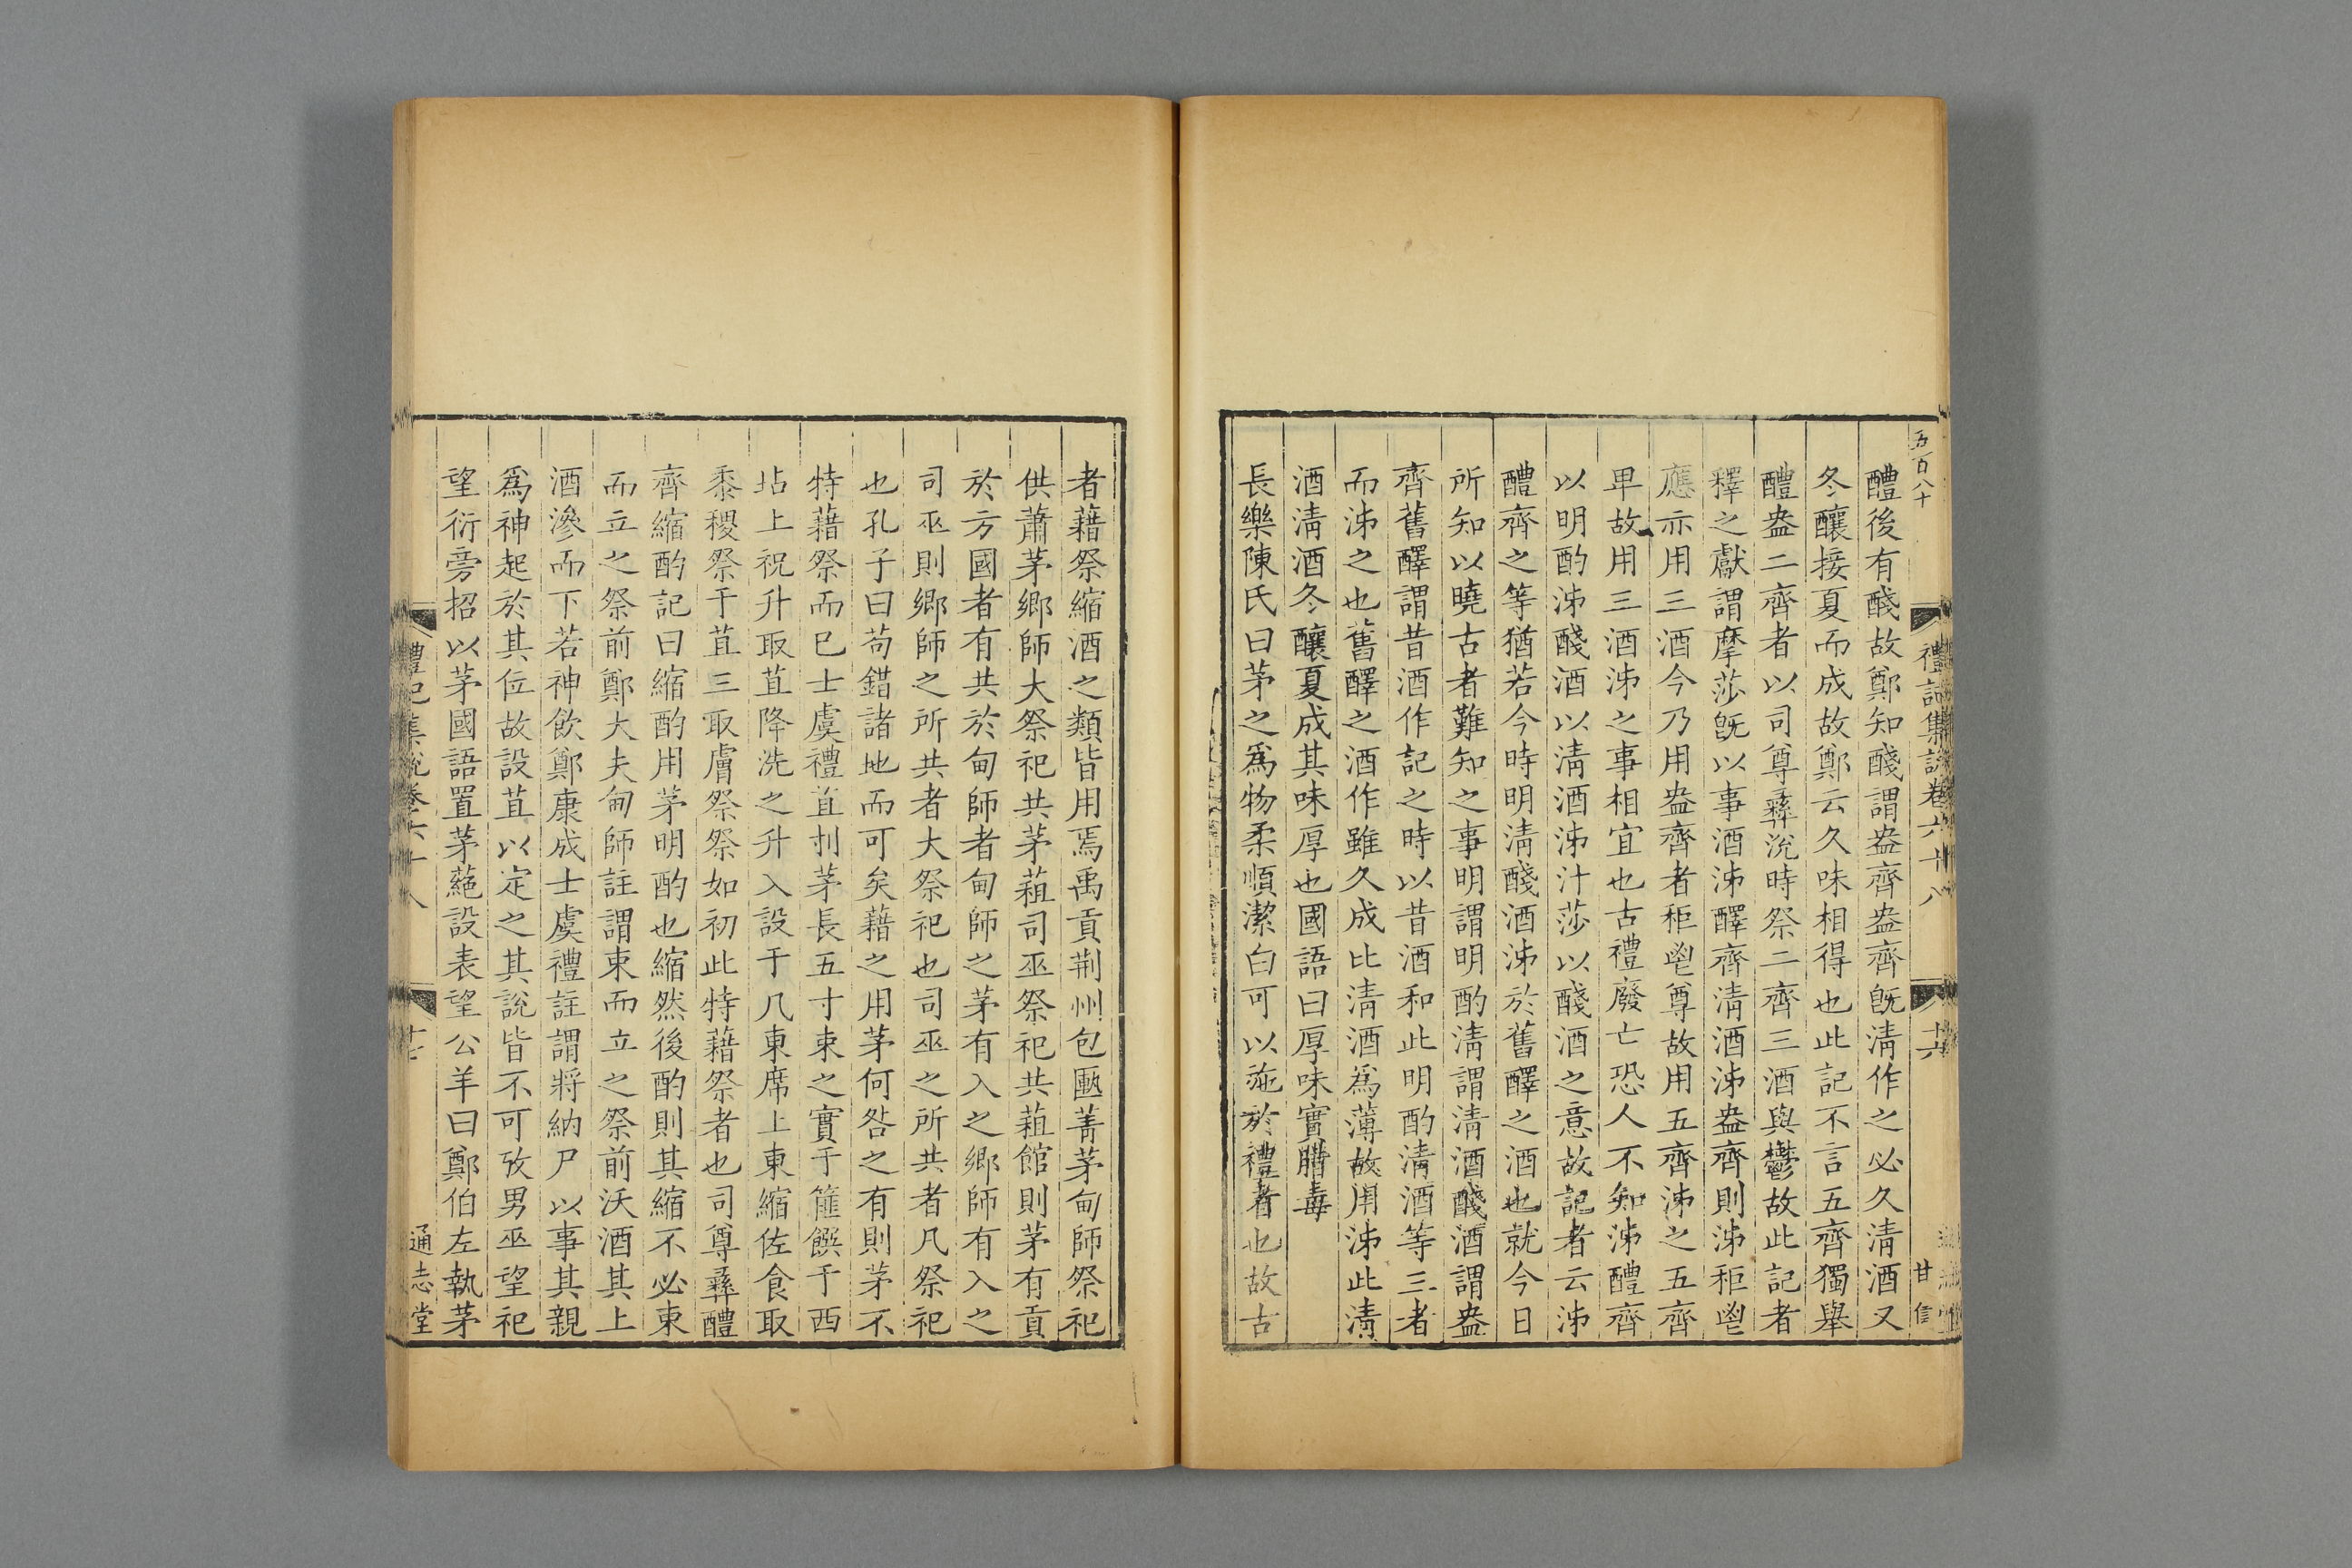 五百八十
禮記集說卷六十八
十六
甘信
醴後有醆故鄭知醆謂盎齊盎齊旣淸作之必久淸酒又
冬釀接夏而成故鄭云久味相得也此記不言五齊獨舉
醴盎二齊者以司尊彞涗時祭二齊三酒與鬱故此記者
釋之獻謂摩莎旣以事酒泲醳齊淸酒泲盎齊則泲秬鬯
應亦用三酒今乃用盎齊者秬鬯尊故用五齊泲之五齊
卑故用三酒泲之事相宜也古禮廢亡恐人不知泲醴齊
以明酌泲醆酒以淸酒泲汁莎以醆酒之意故記者云泲
醴齊之等猶若今時明淸醆酒泲於舊醳之酒也就今日
所知以曉古者難知之事明謂明酌淸謂淸酒醆酒謂盎
齊舊醳謂昔酒作記之時以昔酒和此明酌淸酒等三者
而泲之也舊醳之酒作雖久成比淸酒爲薄故用泲此淸
酒淸酒冬釀夏成其味厚也國語曰厚味實腊毒
長樂陳氏曰茅之爲物柔順潔白可以施於禮者也故古
者藉祭縮酒之類皆用焉禹貢荆州包匭菁茅甸師祭祀
供蕭茅鄉師大祭祀共茅蒩司巫祭祀共蒩館則茅有貢
於方國者有共於甸師者甸師之茅有入之鄉師有入之
司巫則鄉師之所共者大祭祀也司巫之所共者凡祭祀
也孔子曰苟錯諸地而可矣藉之用茅何咎之有則茅不
特藉祭而已士虞禮苴刌茅長五寸束之實于篚饌于西
坫上祝升取苴降洗之升入設于几東席上東縮佐食取
黍稷祭于苴三取膚祭祭如初此特藉祭者也司尊彞醴
齊縮酌記曰縮酌用茅明酌也縮然後酌則其縮不必束
而立之祭前鄭大夫甸師註謂束而立之祭前沃酒其上
酒滲而下若神飮鄭康成士虞禮註謂將納尸以事其親
爲神起於其位故設苴以定之其說皆不可攷男巫望祀
望衍旁招以茅國語置茅蕝設表望公羊曰鄭伯左執茅
禮記集說卷六十八
十七
通志堂